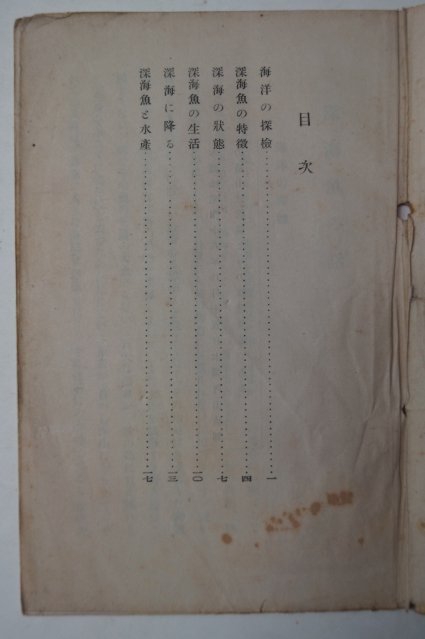 目次
海洋の探檢……………………一
深海魚の特徴……………………四
深海の狀態……………………七
深海魚の生活……………………一〇
深海に降る……………………一三
深海魚と水產……………………一七